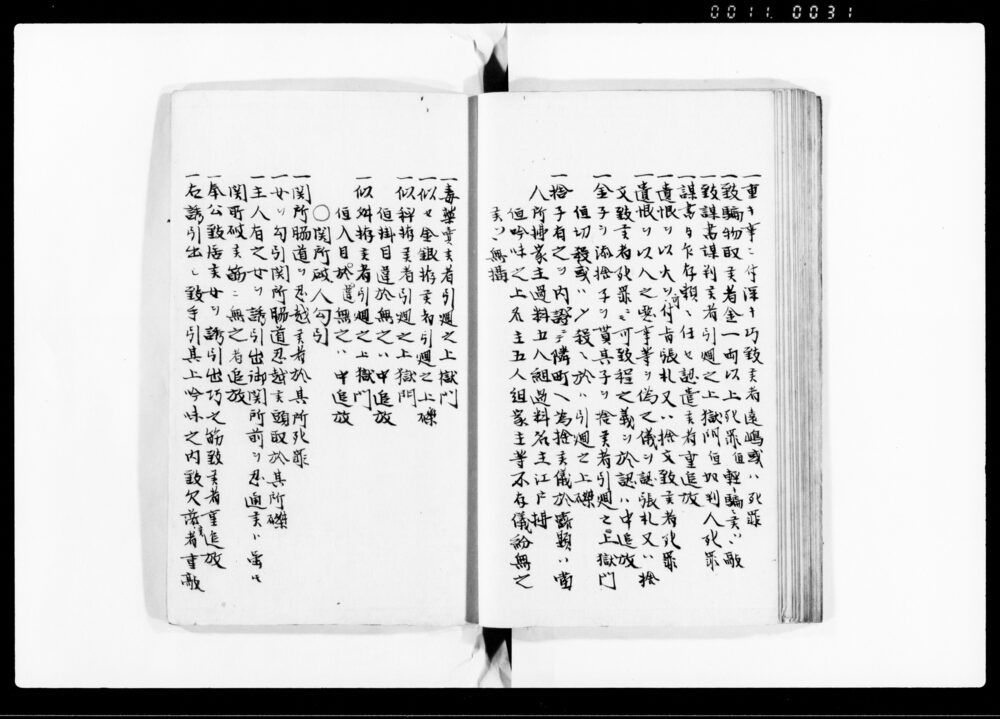 0011 0031
一重キ事ニ付深キ巧致候者遠嶋或ハ死罪
一致騙物取候者金一両以上死罪但軽騙候ハ敲
一致謀書謀判候者引廻之上獄門但加判人死罪
謀書乍存頼ニ任セ認遣候者重追放
一遺恨ヲ以火ヲ可付旨張札又ハ捨文致候者死罪
一遺恨ヲ以人之悪事等ヲ偽之儀ヲ認張札又ハ捨
文致候者死罪ニ可致程之義ヲ於認ハ中追放
一金子ヲ添捨子ヲ貰其子ヲ捨候者引廻之上獄門
但切殺或ハ〆殺ニ於ハ引廻之上磔
一捨子有之ヲ内証ニテ隣町ヘ為捨候儀於露顕ハ当
人所払家主過料五人組過料名主江戸払
但吟味之上名主五人組家主等不存儀紛無之
候ハ無構
一毒薬売候者引廻之上獄門
一似セ金銀拵候者引廻之上磔
一似秤拵候者引廻之上獄門
但掛目違於無之ハ中追放
一似舛拵候者引廻之上獄門
但入目於違無之ハ中追放
〇関所破人勾引
一関所脇道ヲ忍越候者於其所死罪
一女ヲ勾引関所脇道忍越候頭取於其所磔
一主人有之女ヲ誘引出御関所前ヲ忍通候ハ当セ
関所破候筋ニ無之者追放
一奉公致居候女ヲ誘引出巧之筋致候者重追放
一右誘引出シ致手引其上吟味之内致欠落候者重敲